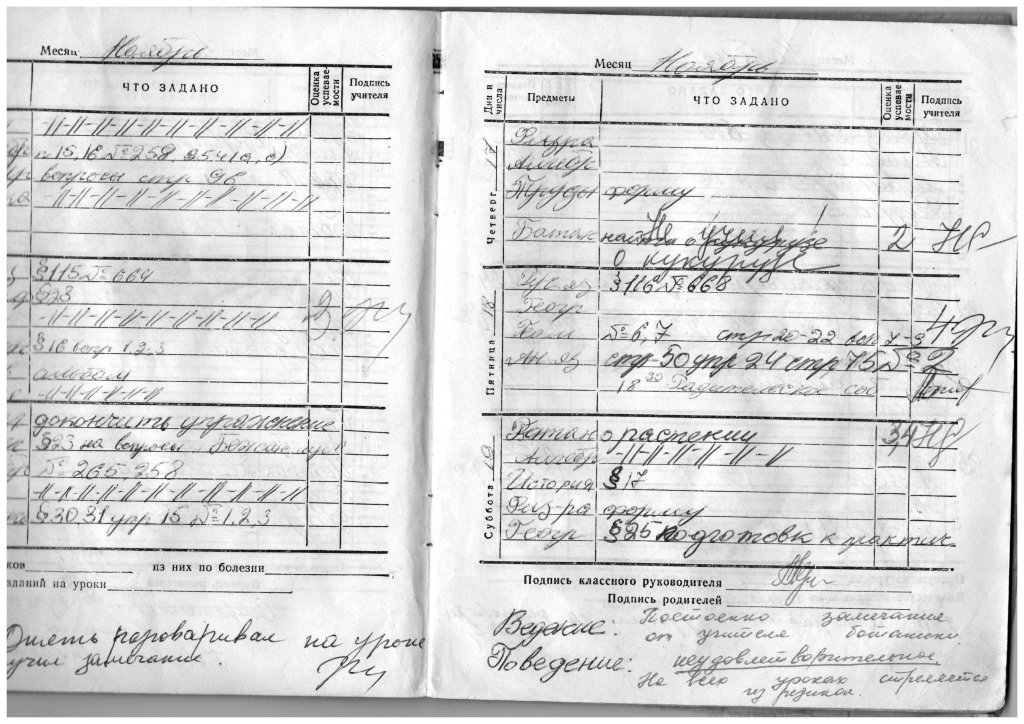 Месяц Ноябрь
ЧТО ЗАДАНО
Оценка успеваемости
Подпись учителя
-//-//-//-//-//-//-//-//-//-//
п 15,16 № 258, 254(а, д)
вопросы стр 96
-//-//-//-//-//-//-//-//-//-//
§ 115 № 664
§ 23
2
-//-//-//-//-//-//-//-//-//
§ 16 вопр 1,2,3
альбом
-//-//-//-//-//
докончить упражнение
§23 на вопросы
№ 265, 258
-//-//-//-//-//-//-//-//-//-//
§ 30, 31 упр 15 № 1, 2, 3
из них по болезни
зданий на уроки
Опять разговаривал на уроке
учил замечание.
Месяц Ноябрь
Дни и числа
Предметы
ЧТО ЗАДАНО
Оценка успеваемости
Подпись учителя
Четверг 17
Физ-ра
Алгебр
Труды форму
Ботан
Не учил!
о кукурузе
2
Пятница 18
Рус яз
§ 116 № 668
Геогр
4
Гом
№ 6, 7 стр 20-22 вопр 7-9
Ан яз
стр-50 упр 24 стр 75 №
2
18 30 Родительское соб
Суббота 19
Ботан о растении
3/4
Алгебр -//-//-//-//-//-//
История § 17
Физ-ра форму
Геогр § 25 подготовк к практич
Подпись классного руководителя
Подпись родителей
Ведение: Постоенно замечание
от учителя ботаники.
Поведение: неудовлетворительное.
На всех уроках стреляется
из резинки.